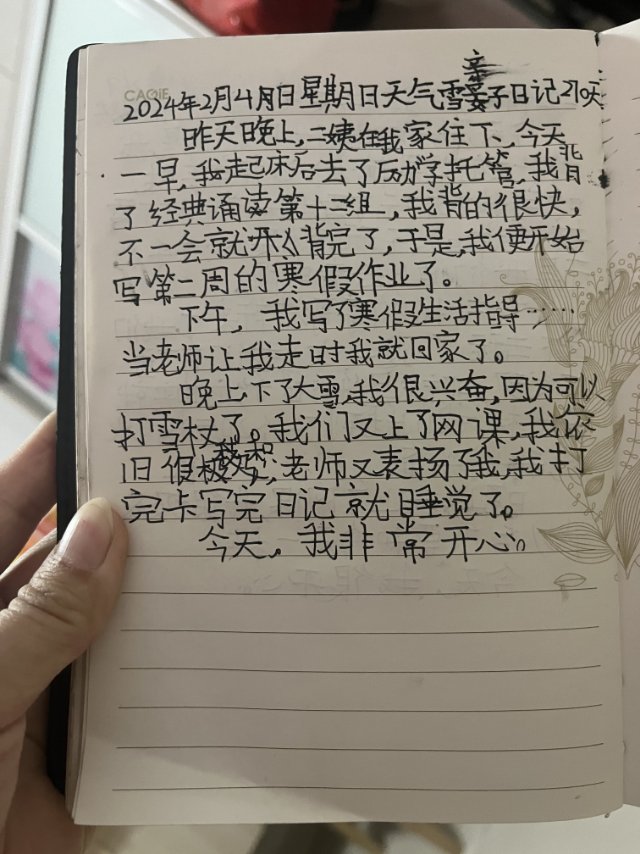 CAGiE
2024年2月4日星期日天气雪亲子日记210天
昨天晚上,二姨在我家住下,今天
一早,我起床后去了励学托管,我背
了经典诵读第十二组,我背的很快,
不一会就背完了,于是,我便开始
写第二周的寒假作业了。
下午,我写了寒假生活指导……
当老师让我走时我就回家了。
晚上,下了大雪,我很兴奋,因为可以
打雪杖了。我们又上了网课,我依
旧很积极,老师又表扬了我,我打
完卡写完日记就睡觉了。
今天,我非常开心。